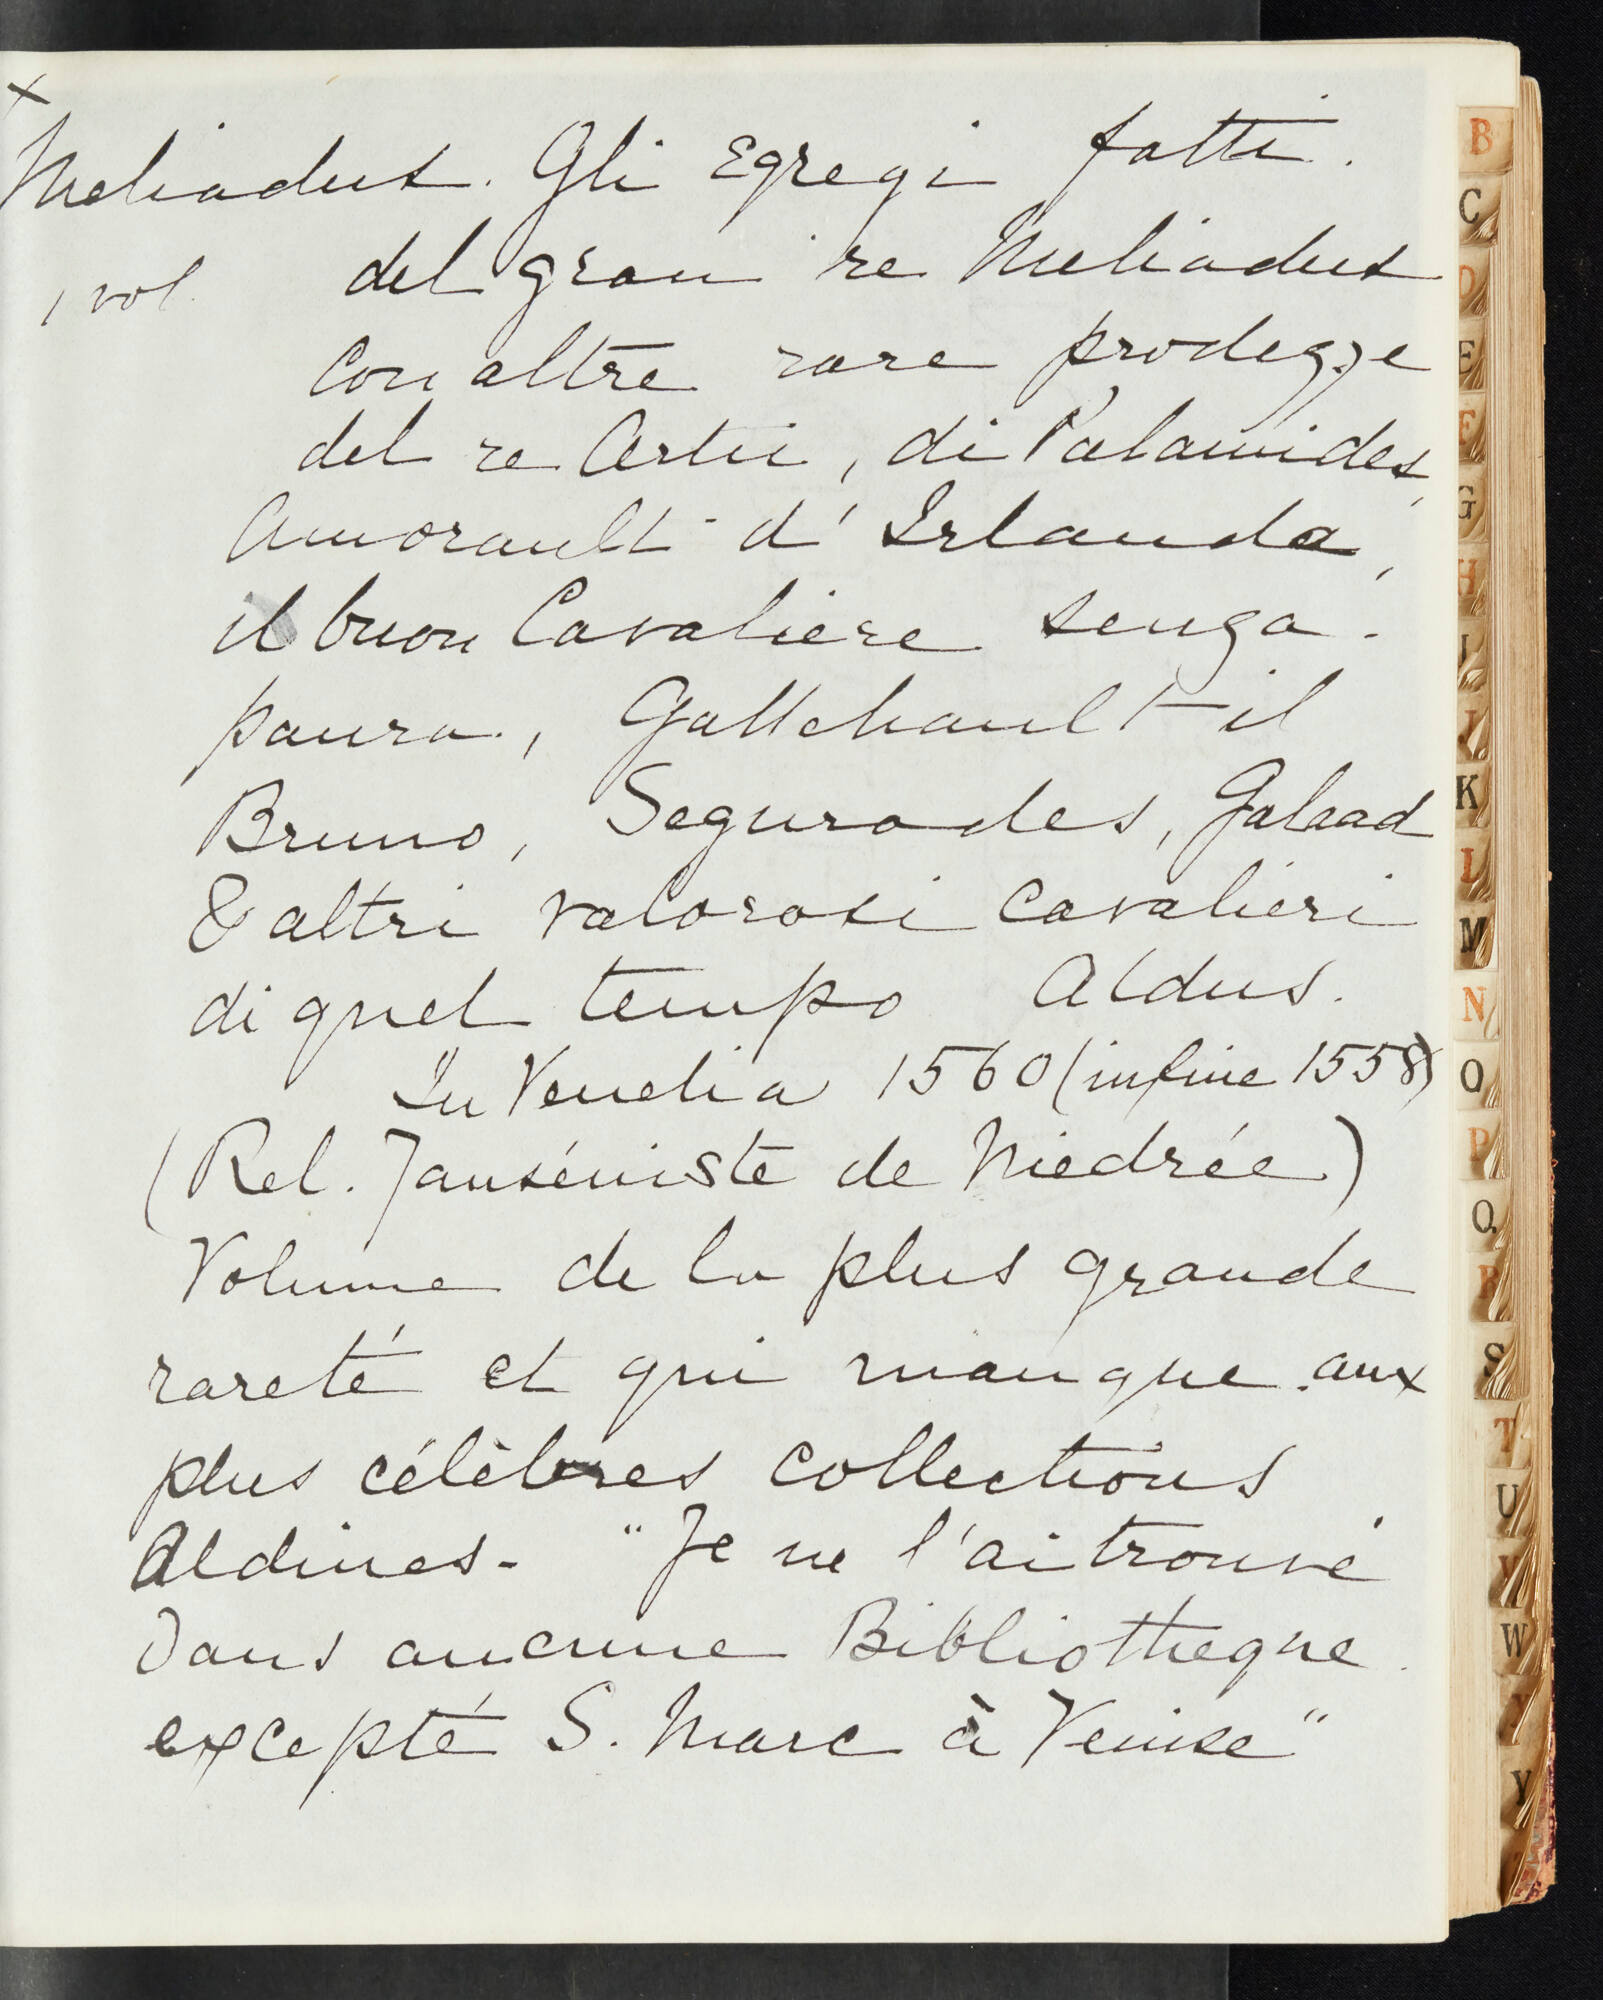 x
Meliadus. Gli Egregi fatti.
del gran re Meliadus
1 vol.
Con altre rare prodezze
del re Artu, di Palamides,
Amorault d'Irlanda,
il buon Cavaliere senza
paura, Gallehault il
Bruno, Segurades, Galaad
& altri valorosi cavalieri
di quel tempo Aldus.
In Venetia 1560 (in fine 1558)
(Rel. Janséniste de Niedrée)
Volume de la plus grande
rareté et qui manque aux
plus célèbres collections
Aldines - "Je ne l'ai trouvé
Dans aucune Bibliotheque
excepté S. Marc à Venise"
B
C
D
E
F
G
H
I
J
K
L
M
N
O
P
Q
R
S
T
U
V
W
Y